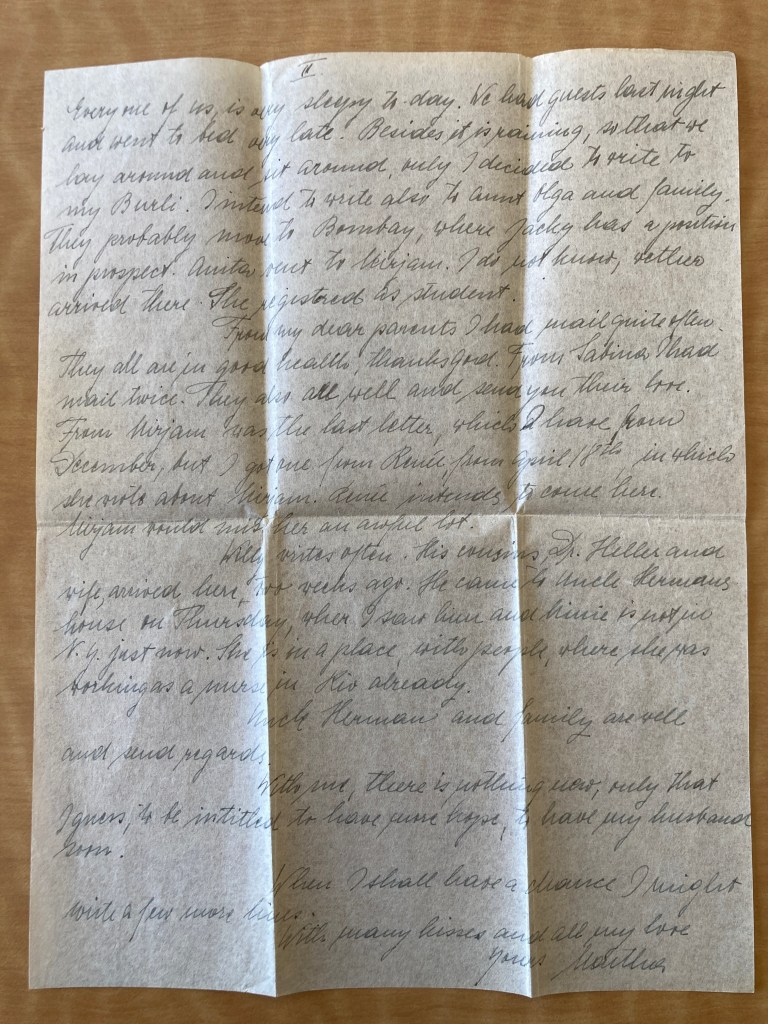 II
Everyone of us is very sleepy to-day. We had guests last night
and went to bed very late. Besides it is raining, so that we
lay around and sit around, only I decided to write to
my Burli. I intend to write also to aunt Olga and family.
They probably move to Bombay, where Jacky has a position
in prospect. Anita went to Mirjam. I do not know, wether
arrived there. She registered as student.
From my dear parents I had mail quite often.
They all are in good health, thanks god. From Sabina I had
mail twice. They also all well and send you their love.
From Mirjam was the last letter, which I have from
December, but I got one from Renée from april 18th in which
she wrote about Mirjam. Renée intends to come here.
Mirjam would miss her an awful lot.
Willy writes often. His cousins, Dr. Heller and
wife, arrived here, two weeks ago. He came to Uncle Hermans
house on Thursday, when I saw him and is not in
N.Y. just now. She is in a place, with people, where she was
working as a nurse in Rio already.
Uncle Herman and family are well
and send regards.
With me, there is nothing new, only that
I guess, to be intitled to have more hope, to have my husband
soon.
When I shall have a chance I might
write a few more lines.
With many kisses and all my love
Yours Martha